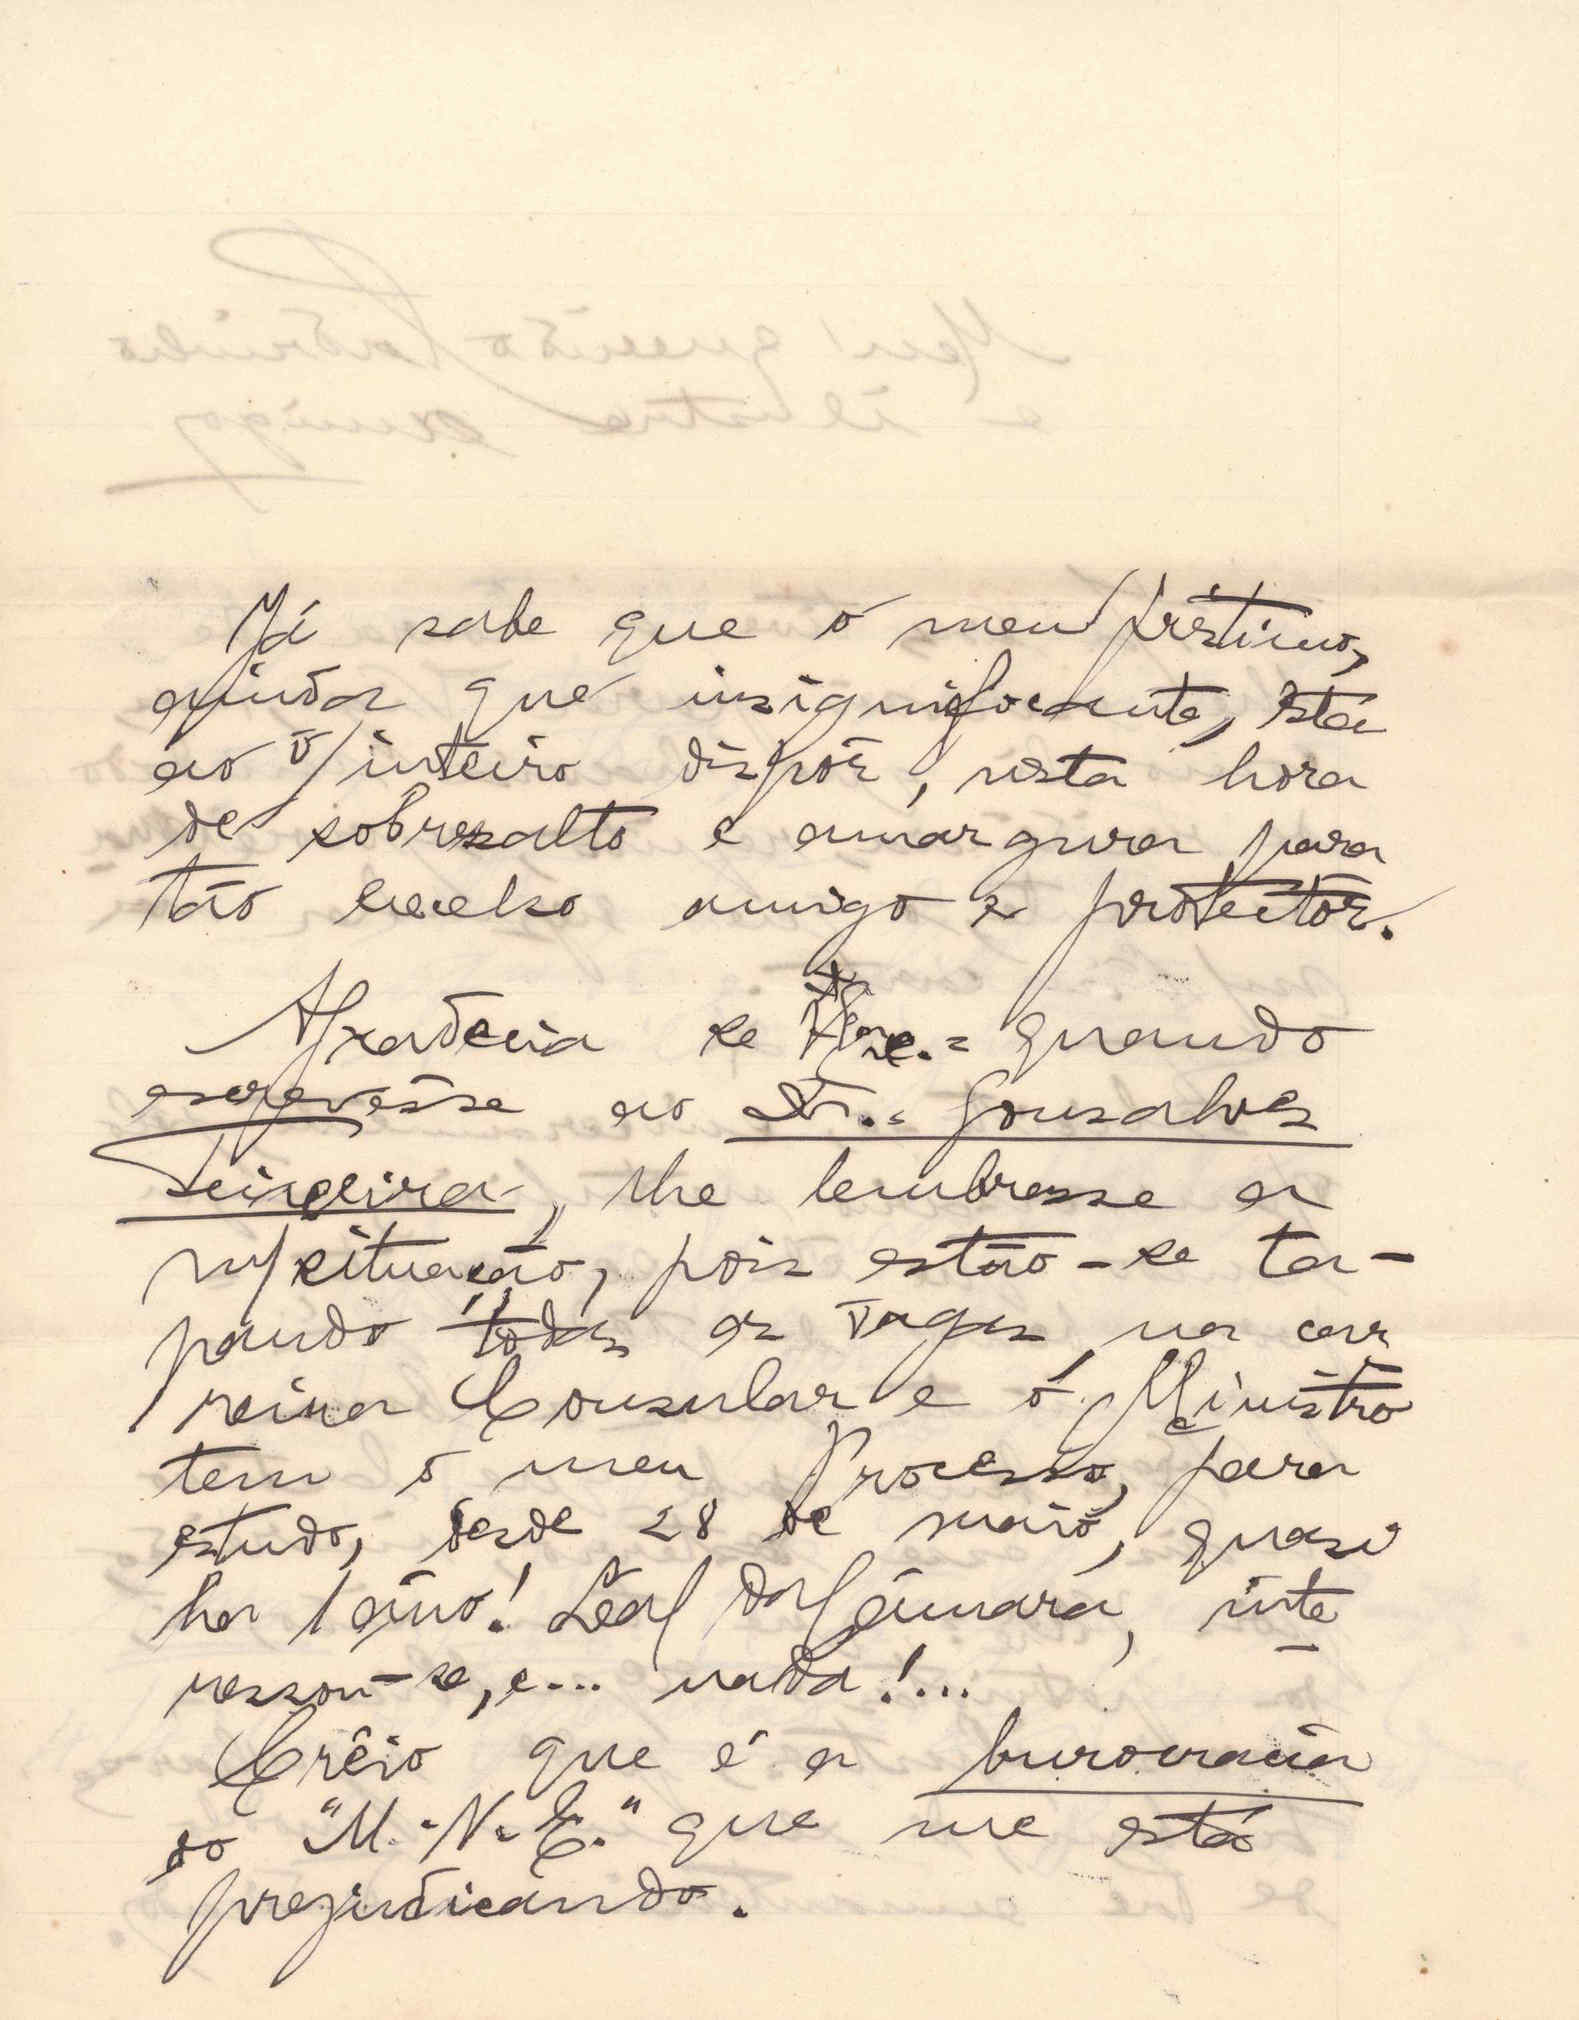 Já sabe que o meu préstimo,
ainda que insignificante, está
ao v/ inteiro dispôr, nesta hora
de sobresalto e amargura para
tão excelso amigo e protectôr.
Agradecia se quando
escrevêsse ao Dr. Gonsalves
Teixeira, lhe lembrasse a
m/ situação, pois estão-se ta-
pando todas as vagas na car
reira Consular e o Ministro
tem o meu Processo, para
estudo, desde 28 de maio, quasi
ha 1 ano! Leal da Câmara, inte
ressou-se, e... nada!...
Crêio que é a burocracia
do "M.-N.-E." que me está
prejudicando.